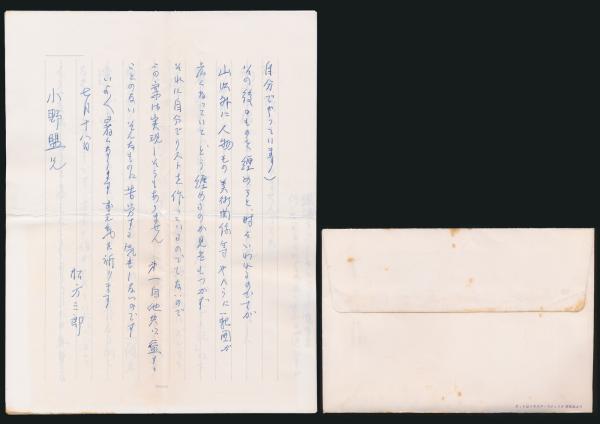 自分でやっています)
その後のものを纏めると、時々いわれるのですが
山以外に人物もの美術関係等やたらに範囲が
広くなっていて、どう纏めるのか見当もつかず
それに自分でリストを作っているのでもないので
この案は実現しそうもありません 第一自他共に益する
ことのないそんなものに苦労する気もしないのです
いよいよ暑くなります お元気を祈ります
七月十八日
松方三郎
小野盟兄